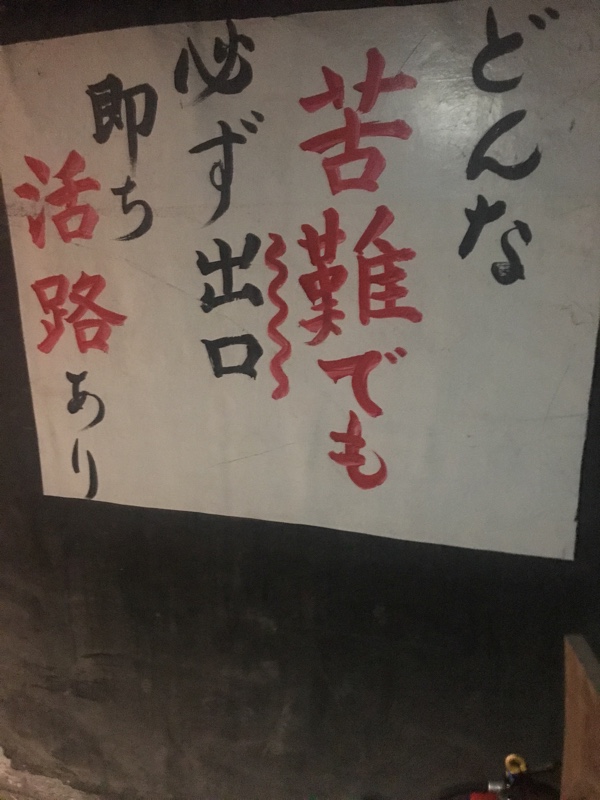 どんな
苦難でも
必ず出口
即ち
活路あり